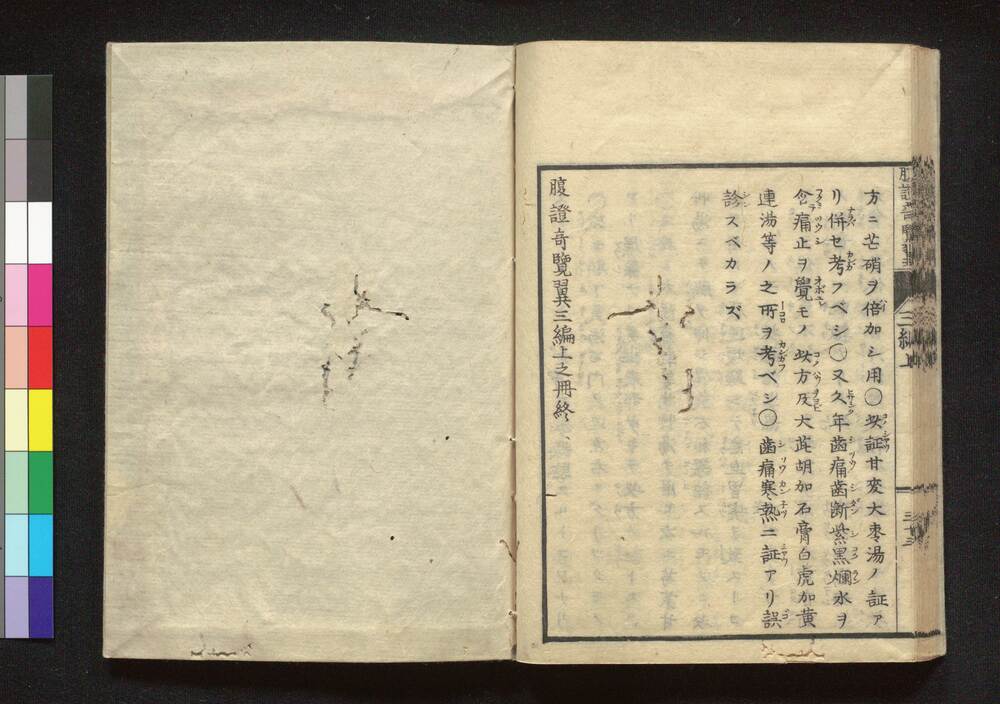 方ニ芒硝ヲ倍加シ用○此証甘麥大棗湯ノ証ア
リ併セ考フベシ○又久年齒痛齒斷紫黒爛水ヲ
含痛止ヲ覺モノ此方及大茈胡加石膏白虎加黄
連湯等ノ之所ヲ考ベシ○齒痛寒熱ニ証アリ誤
診スベカラズ
腹證奇覽翼三編上之冊終
腹證奇覽翼
三編上
三十三